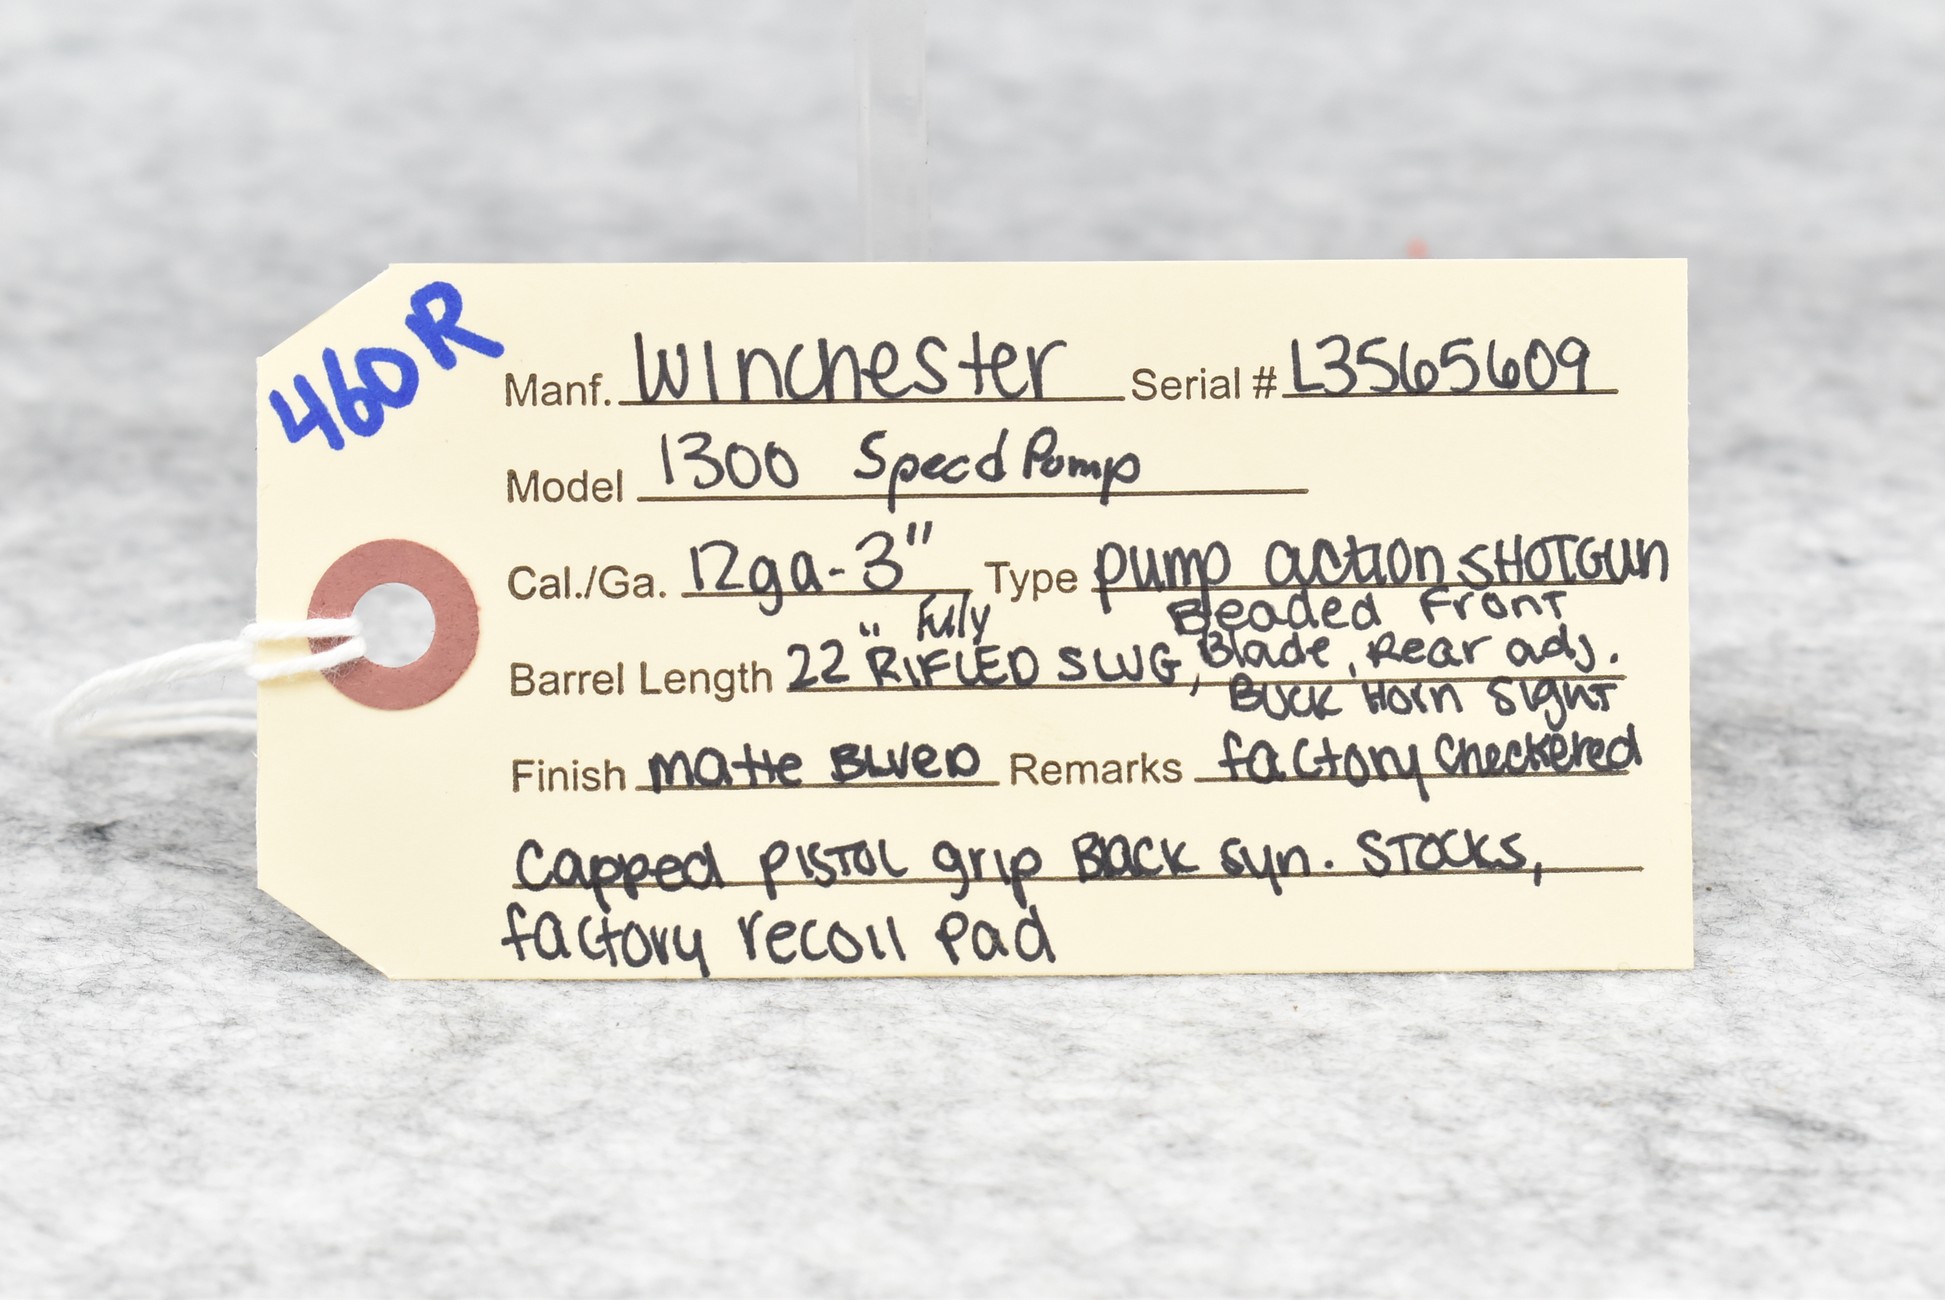 460R
Manf. Winchester Serial # L3565609
Model 1300 Speed Pump
Cal./Ga. 12ga-3" Type pump action SHOTGUN
Barrel Length 22" Fully RIFLED SLUG, Beaded Front
Blade, Rear adj.
Buck Horn Sight
Finish matte BLUED Remarks factory checkered
Capped PISTOL grip Black syn. STOCKS,
factory recoil Pad